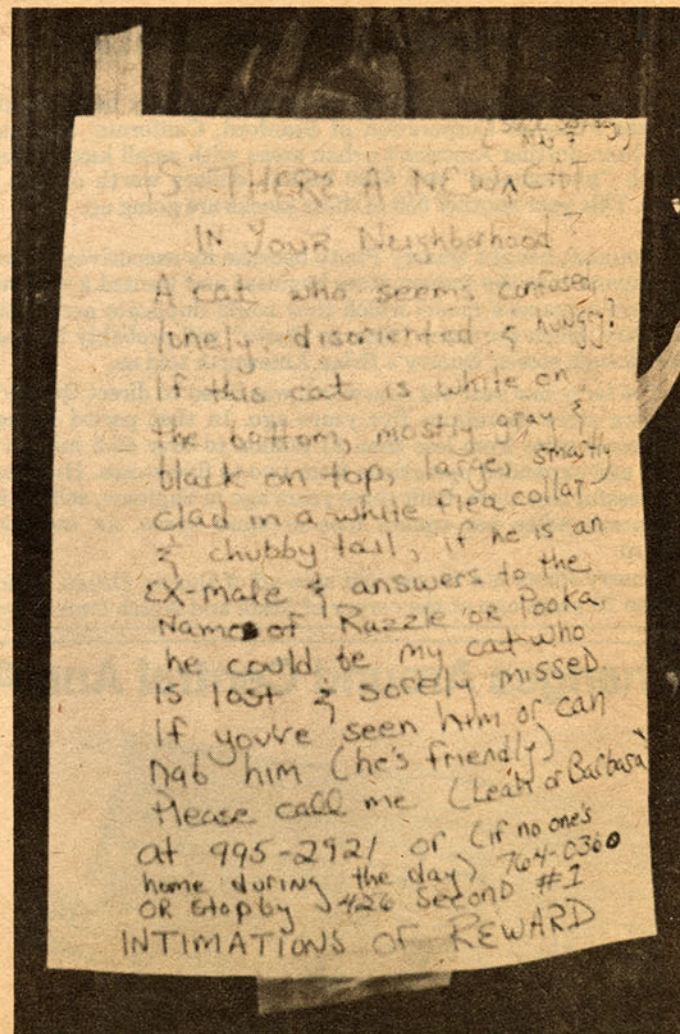 IS THERE A NEW CAT
IN YOUR Neighborhood?
A cat who seems confused,
lonely, disoriented & hungry?
If this cat is white on
the bottom, mostly gray &
black on top, large, smartly
clad in a white flea collar
& chubby tail, if he is an
EX-male & answers to the
Names of Razzle OR Pooka,
he could be my cat who
is lost & sorely missed.
If you've seen him or can
nab him (he's friendly)
Please call me (Leah or Barbara)
at 995-2921 or (if no one's
home during the day) 764-0360
OR stop by 426 Second #1
INTIMATIONS OF REWARD